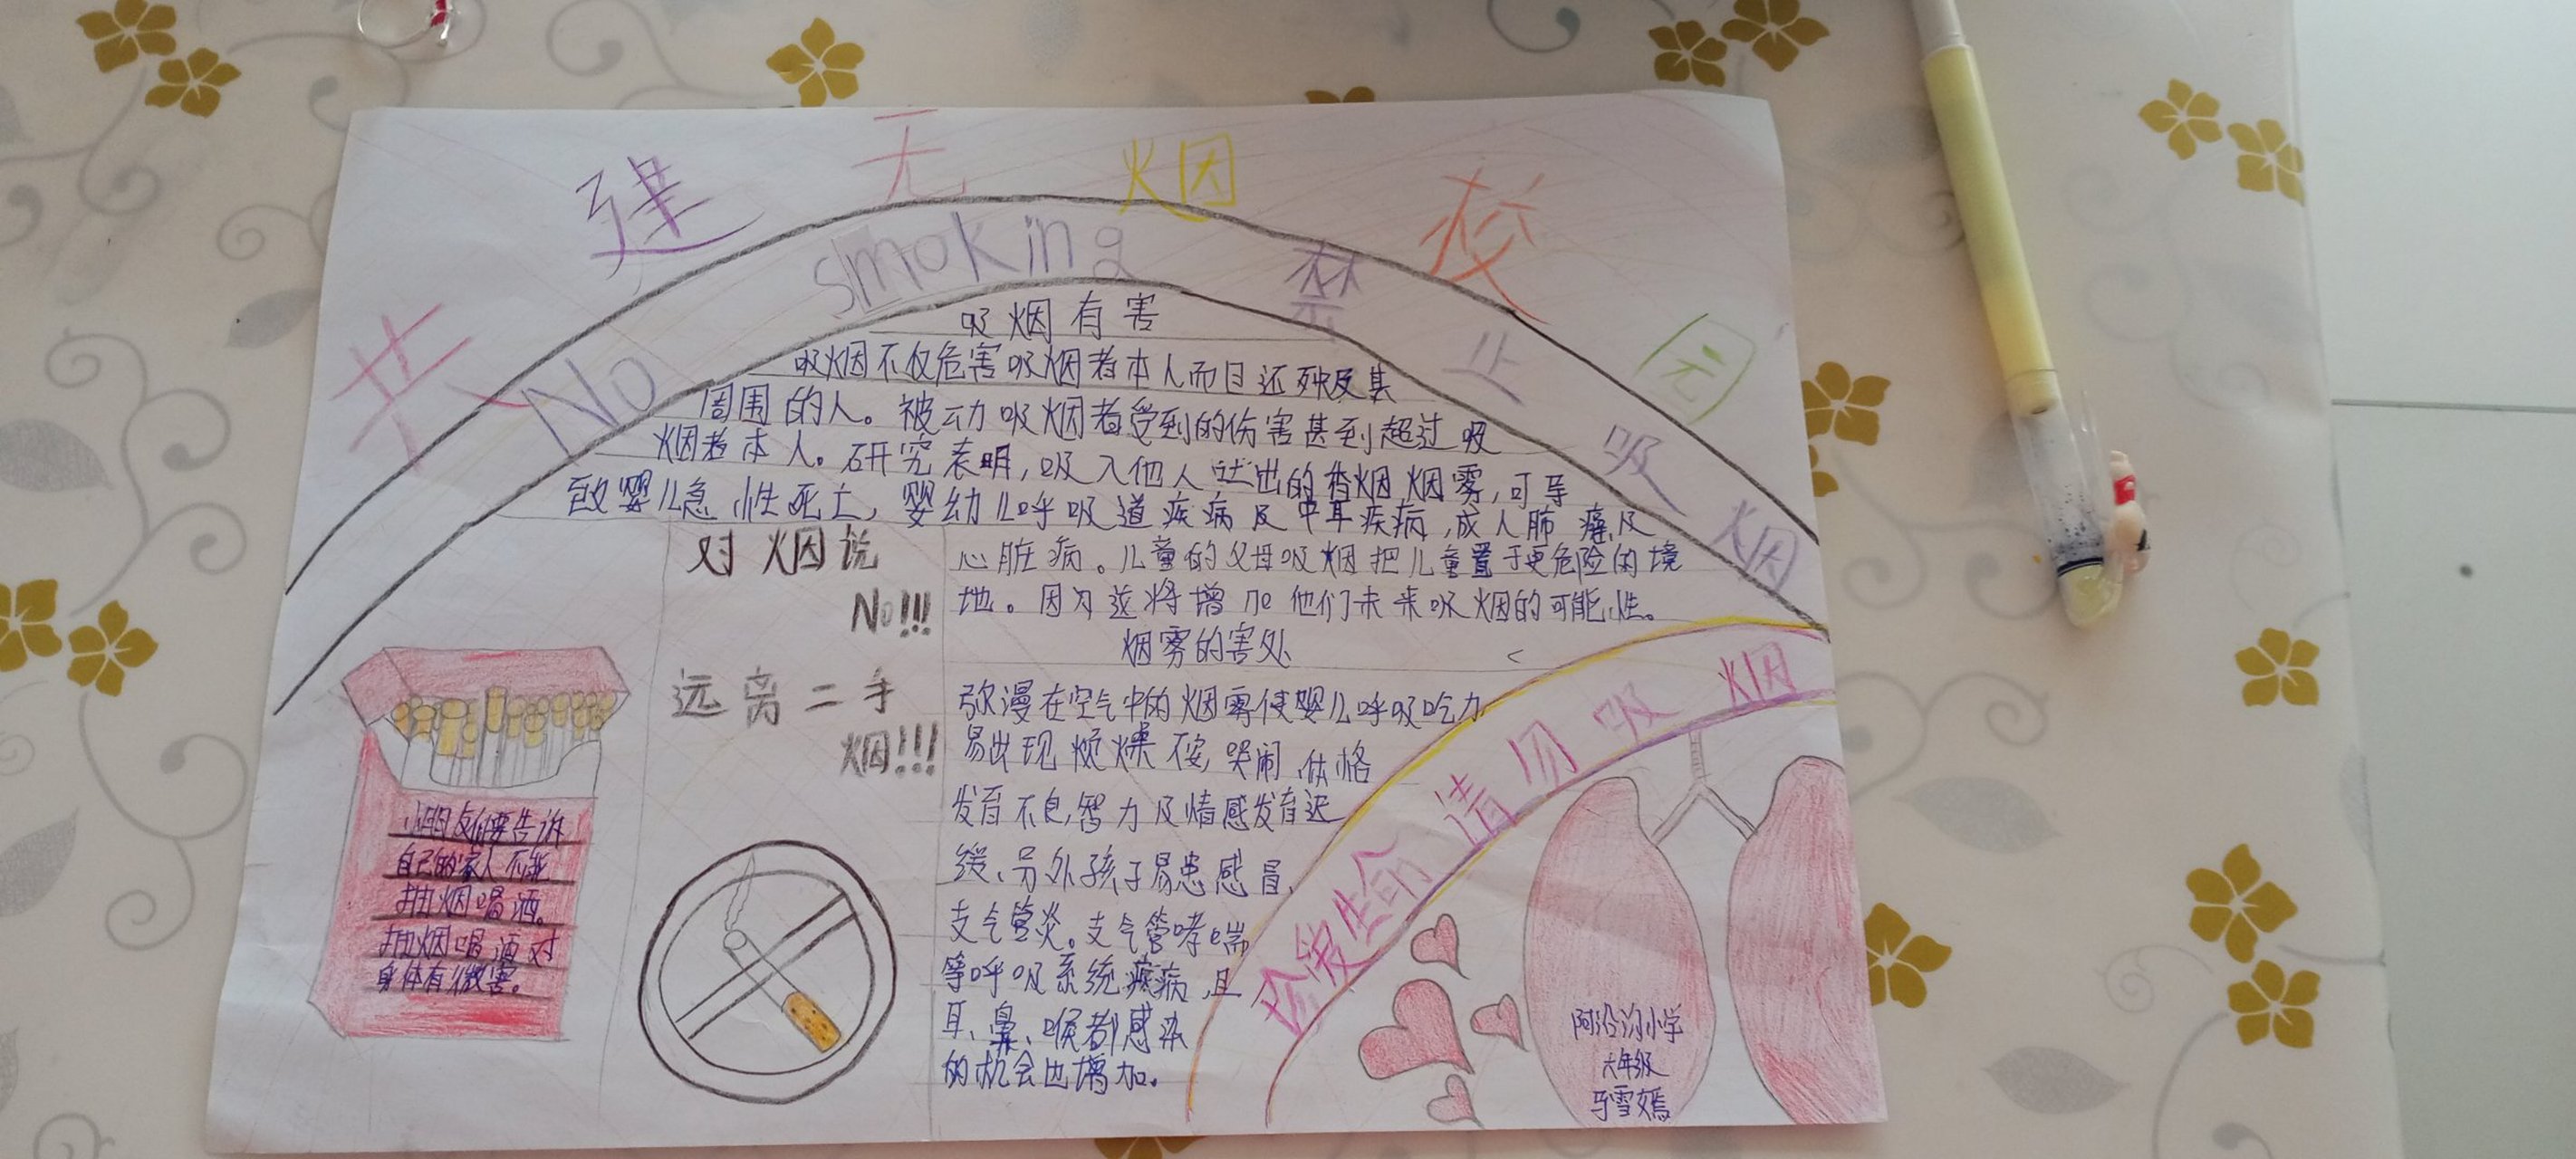 共建无烟校园
No smoking 禁止吸烟
吸烟有害
吸烟不仅危害吸烟者本人而且还殃及其
周围的人。被动吸烟者受到的伤害甚到超过吸
烟者本人。研究表明,吸入他人吐出的香烟烟雾,可导
致婴儿急性死亡,婴幼儿呼吸道疾病及中耳疾病,成人肺癌及
心脏病。儿童的父母吸烟把儿童置于更危险的境
地。因为这将增加他们未来吸烟的可能性。
烟雾的害处
弥漫在空气中的烟雾使婴儿呼吸吃力
易出现烦燥不安,哭闹,体格
发育不良,智力及情感发育迟
缓、另外孩子易患感冒、
支气管炎。支气管哮喘
等呼吸系统疾病,且
耳、鼻、喉都感染
的机会也增加。
对烟说
No!!!
远离二手
烟!!!
小朋友们要告诉
自己的家人不能
抽烟喝酒。
抽烟喝酒对
身体有害。
珍爱生命请勿吸烟
小学
六年级
马雪嫣